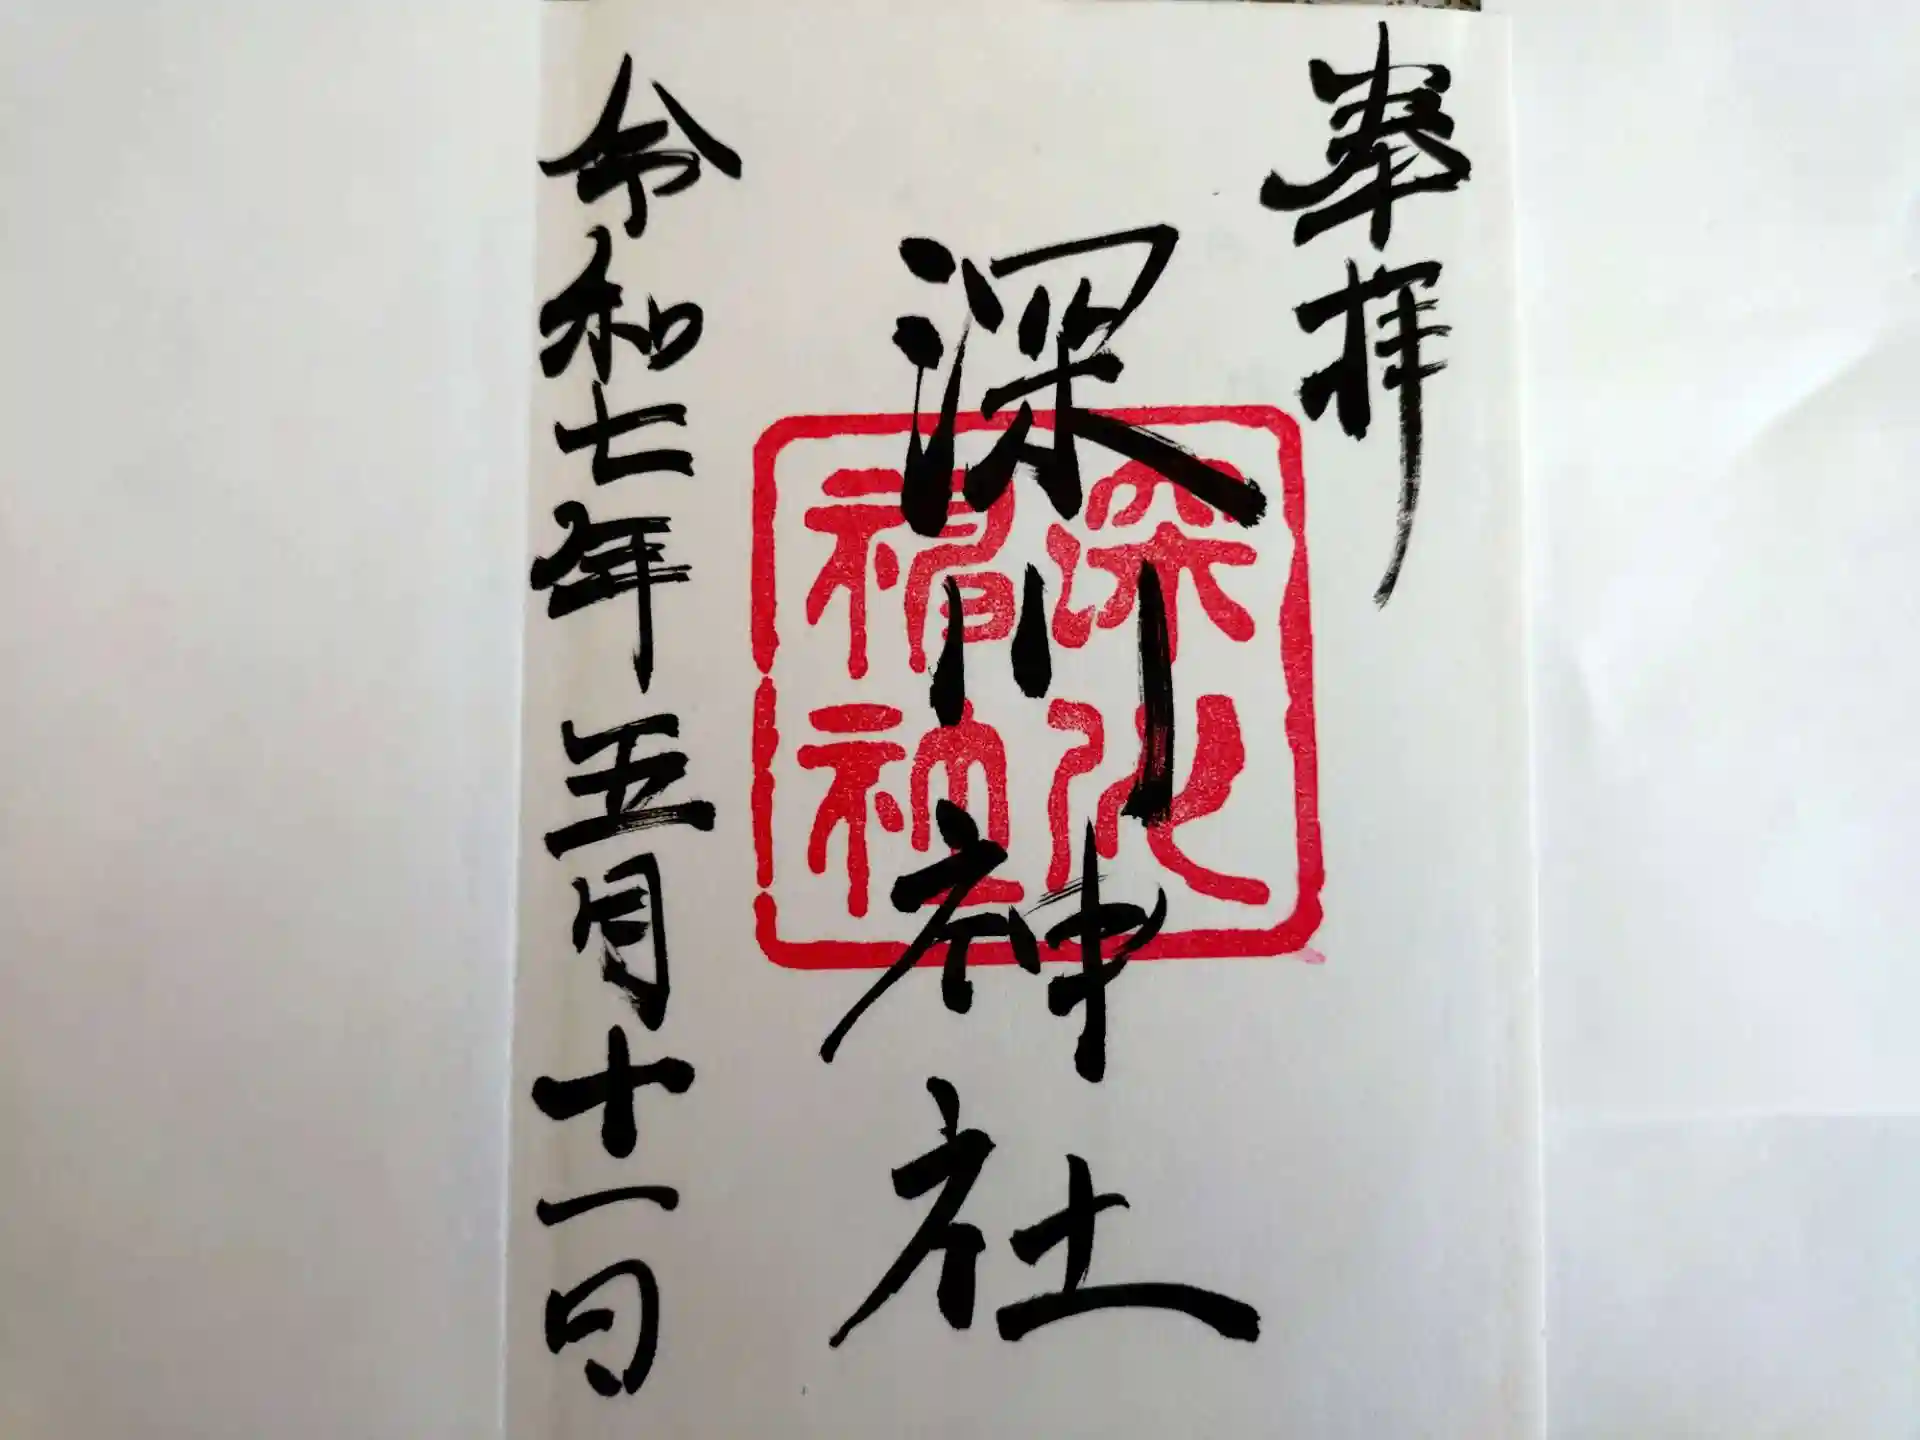 奉拝
深川神社
深川神社
令和七年五月十一日